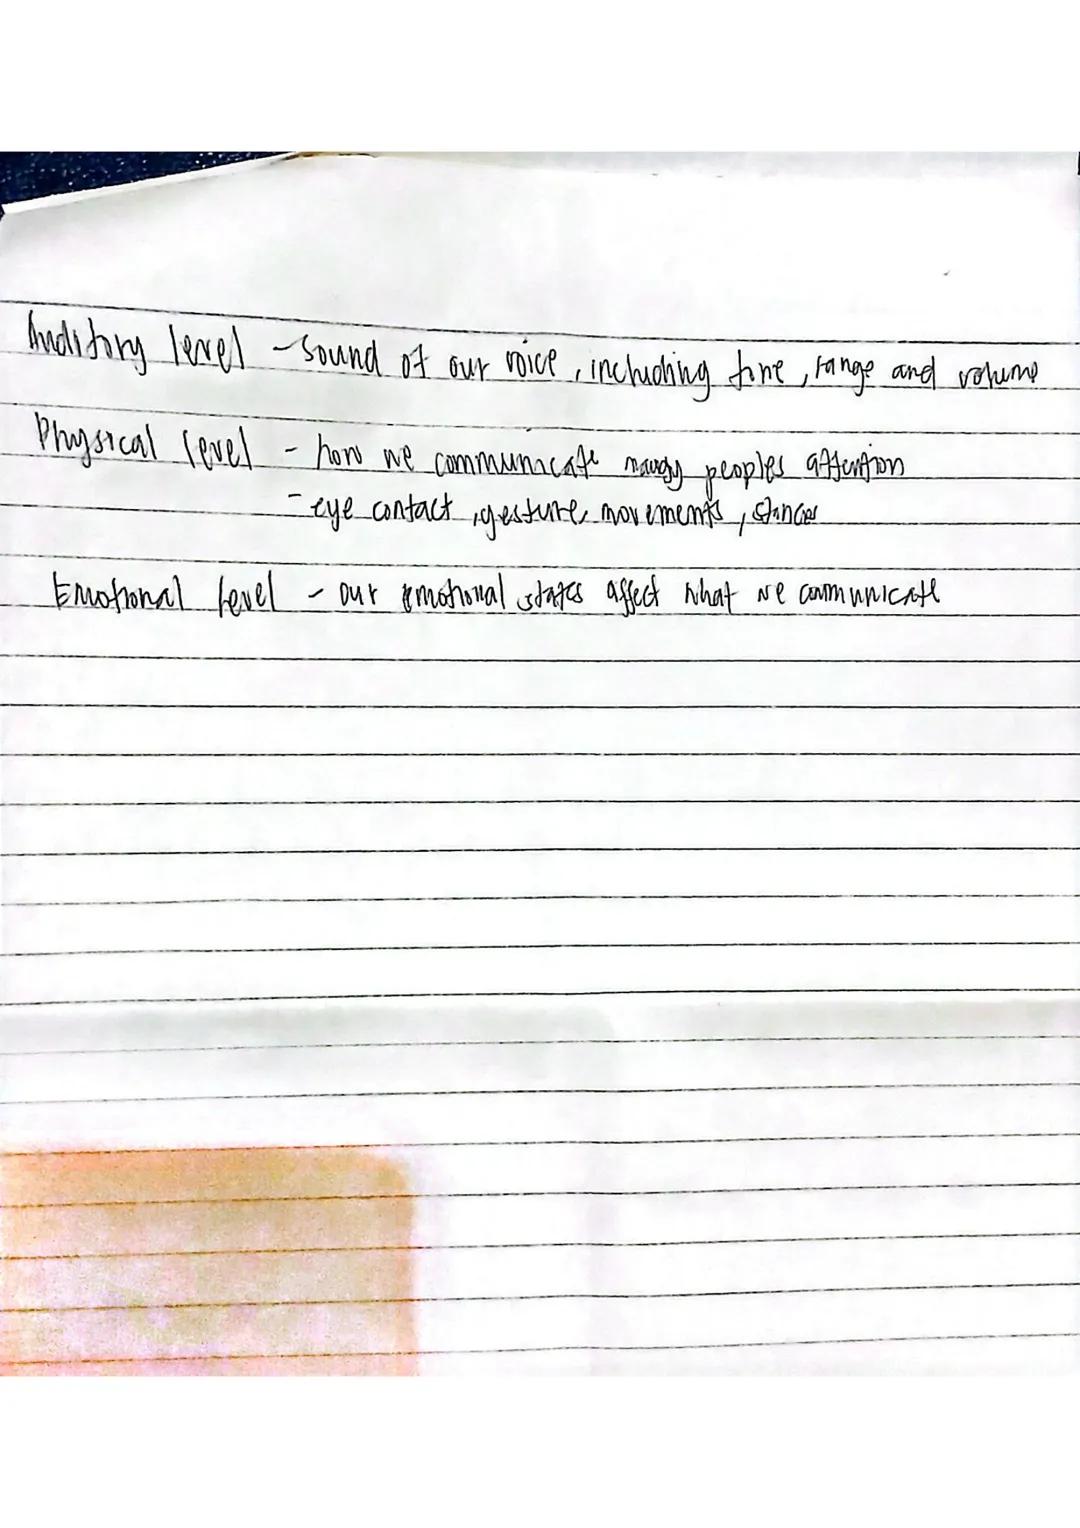 Auditory level - sound of our voice, including tone, range and volume
Physical level - how we communicate peoples attention
- eye contact, gesture, movements, stances
Emotional level - our emotional states affect what we communicate